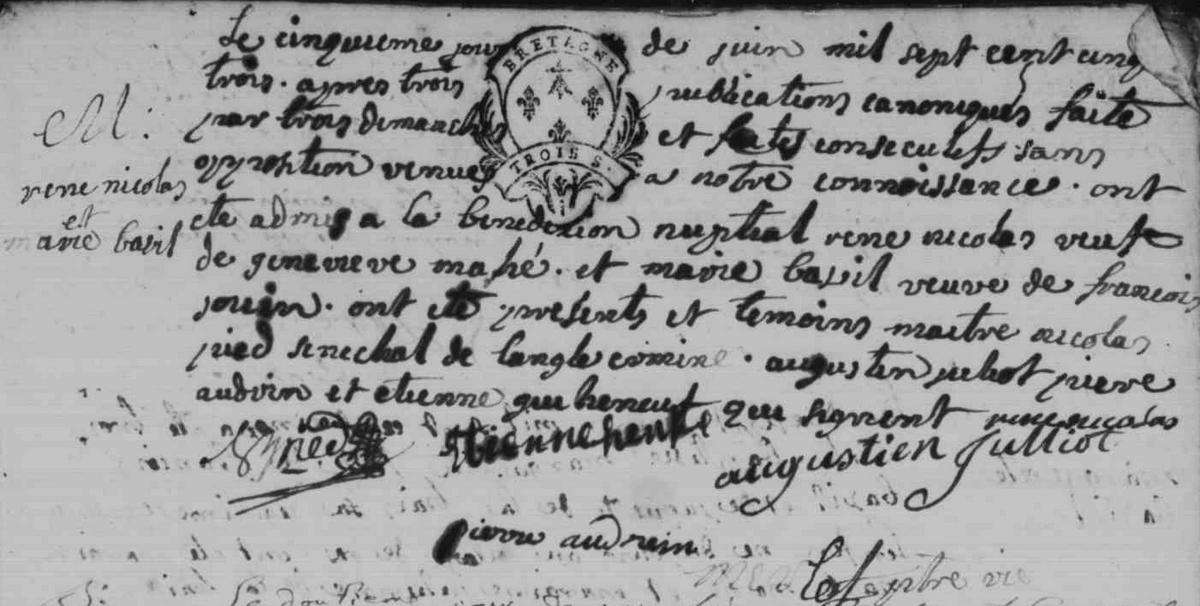 Le cinquieme jour de juin mil sept cent cinq
trois. apres trois publications canoniques faite
par trois dimanches et fetes consecutifs sans
opposition venues a notre connoissance. ont
ete admis a la benediction nuptial rene nicolas veuf
de genevieve mahé. et marie basil veuve de francois
jouin. ont ete presents et temoins maitre nicolas
pied senechal de langle ermine. augustin juliot pierre
audrin et etienne gueheneuf qui signent rene nicolas
M:
rene nicolas
et
marie basil
BRETAGNE
TROIS S.
N Pied
Etienne henuf
augustien Julliot
pierre audrein